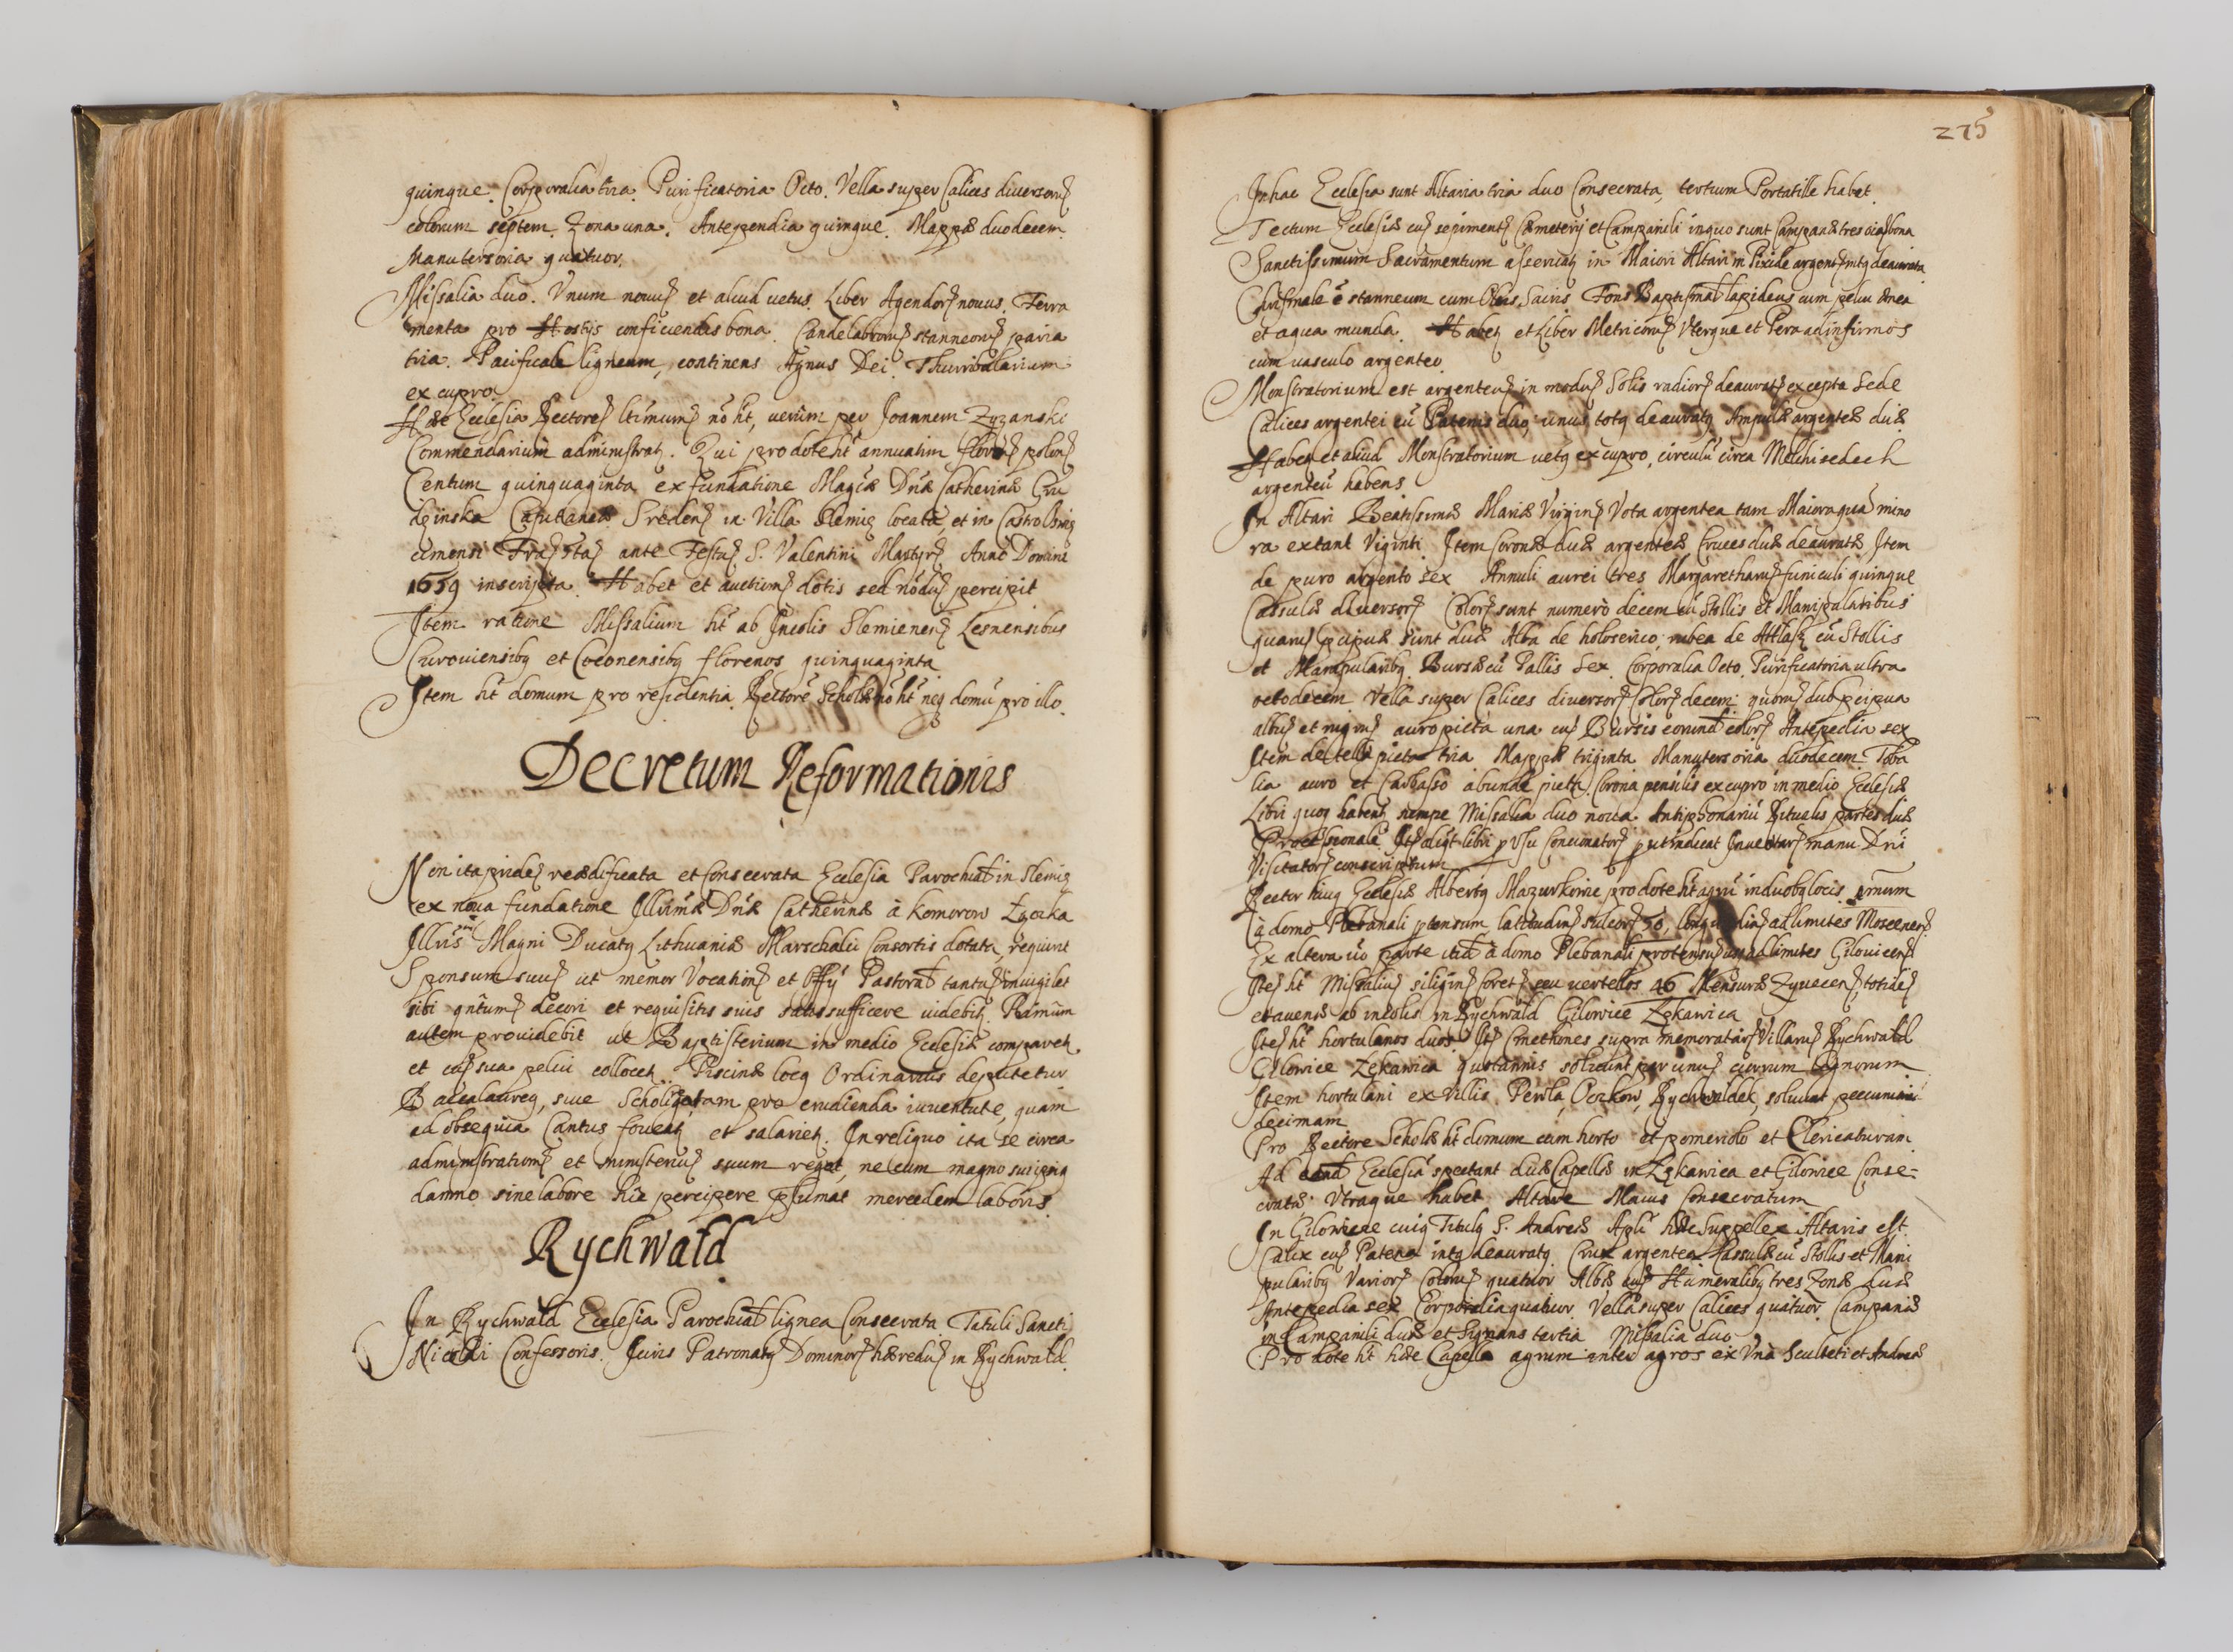 quinque. Corporalia tria. Purificatoria Octo. Vella super Calices diversorũ
colorum septem. Zona una. Antependia quinque. Mappæ duodecem
Manutersoria quatuor.
Missalia duo. Vnum nouũ et aliud uetus. Liber Agendorũ nouus. Ferra
menta pro Hostijs conficiendis bona. Candelabrorũ stanneorũ paria
tria. Pacificale ligneum, continens Agnus Dei. Thurribularium
ex cupro.
Hæc Ecclesia Rectorẽ ltimumũ nõ ht, uerùm per Joannem Zyzanski
Commendarium administratq. Qui pro dote ht annuatim florẽ polonũ
Centum quinquaginta ex fundatione Magcæ Dnæ Catherinæ Gru
dzinska Capitaneæ Sreden in Villa Slemię locata, et in Castro Oswię
cimensi ante Festũ S. Valentini Martyrũ Anno Domini
1659 inscripta. Habet et auctionẽ dotis sed nõdũ percipit
Item ratione Missalium ht ab Incolis Slemienẽ Lesnensibus
Curouiensibq et Coconensibq florenos quinquaginta
Item ht domum pro residentia. Rectorẽ Scholæ nõ ht neq domũ pro illo.
Decretum Reformationis
Non ita pridẽ reædificata et Consecrata Ecclesia Parochial in Slemię
ex noua fundatione Illrimæ Dnæ Catherinæ à Komorow Zyczka
Illris Magni Ducatq Lithuaniæ Marschalii Consortis dotata, requirit
Sponsum suũ ut memor Vocationẽ et Offy Pastoral tantũ inuigilet
sibi qntumũ decori et requisitis suis satis sufficere uidebitq.
autem prouidebit ut Baptisterium in medio Ecclesiæ comparetq
et cũ sua pelui collocetq. Piscinæ locq Ordinarius deputetur
Bacalaureq, siue Scholi pro erudienda iuuentute, quam
ad obsequia Cantus foueatq et salarietq. In reliquo ita se circa
administrationẽ et ministeriũ suum regat, ne cum magno
damno sine labore hic percipere plumat mercedem laboris.
Rychwald
In Rychwald Ecclesia Parochial lignea Consecrata Tituli Sancti
Nicolai Confessoris. Juris Patronatq Dominorũ hæredũ in Rychwald.
275
In hac Ecclesia sunt Altaria tria duo Consecrata, tertium Portatille habet.
Tectum Ecclesiæ cũ sepimentũ Cæmeterij et Campanili in quo sunt Campanæ tres oia bona
Sanctissimum Sacramentum asseruatq in Maiori Altari in Pixide argentẽ intq deaurata
Chrismale ẽ stanneum cum Oleis Sacris Fons Baptismal lapideus cum pelui ænea
et aqua munda. Habetq et Liber Metricorũ Vterque et Pera ad infirmos
cum uasculo argenteo
Monstratorium est argenteũ in modũ Solis radiorũ deauratũ excepta Sede
Calices argentei cũ Patenis duo unus totq deauratq Ampulæ argenteæ duæ
Habetq et aliud Monstratorium uetq ex cupro, circulũ circa Melchisedech
argenteũ habens
In Altari Beatissimæ Mariæ Virginẽ Vota argentea tam Maiora quã mino
ra extant Viginti. Item Coronæ duæ argenteæ Cruces duæ deauratæ Item
de puro argento sex Annuli aurei tres Margaretharũ funiculi quinque
Cassulæ diuersorũ Colorũ sunt numerò decem cũ Stollis et Manipularibus
quarũ pcipuæ sunt duæ Alba de holoserico, rubea de Attlasẽ cũ Stollis
et Manipularibq. Bursæ cũ Pallis Sex. Corporalia Octo. Purificatoria ultra
octodecem Vella super Calices diuersorũ Colorũ decem quorũ duo pcipua
albũ et nigrũ auro picta una cũ Bursis eorund colorũ Antepedia sex
Item de tella picta tria Mappæ triginta Manutersoria duodecem Toba
lia auro et Carbasso abundè picta. Corona pensilis ex cupro in medio Ecclesiæ
Libri quoq habentq nempe Missalia duo noua Antiphonariũ Ritualis partes duæ
Processionale Itẽ aliqt libri p Vsu Concionatorũ put indicat Inuentarũ manu Dni
Visitatorũ conscriptum
Rector huiq Ecclesiæ Albertq Mazurkowic pro dote ht agrũ in duobq locis
à domo Plebanali ptensum, latitudinẽ sulcorũ 50, ad limites Moscenenẽ
Ex altera uò parte itid à domo Plebanali protensũ usq ad limites Gilouicenẽ
Itẽ ht Missaliũ siliginẽ coretũ seu uertellos 46 Mensuræ Zyuecenẽ, totidẽ
et auenæ ab incolis in Rychwald Gilowice Zękawica
Itẽ ht hortulanos duos Itẽ Cmethones supra memoratarũ Villarũ Rychwald
Gilowice Zękawica quotannis soluunt per unũ currum Lignorum
Item hortulani ex Villis Pewla, Oczkow, Rychwaldek, soluunt pecuniariã
decimam
Pro Rectore Scholæ ht domum cum horto et pomeriolo et Clericaturam
Ad eand Ecclesiã spectant duæ Capellæ in Zękawica et Gilowice Conse-
cratæ: Vtraque habet Altare Maius Consecratum
In Gilowice cuiq Titulq S. Andreæ Apli hæc Suppellex Altaris est
Calix cũ Patena intq deauratq Crux argentea Cassulæ cũ Stollis et Mani
pularibq Variorũ Colorũ quatuor Albæ cũ Humeralibq tres Zonæ duæ
Antepedia sex Corporalia quatuor Vella super Calices quatuor Campanæ
in Campanili duæ et Signans tertia Missalia duo
Pro dote ht hæc Capella agrum inter agros ex Vnà Sculteti et Andreæ